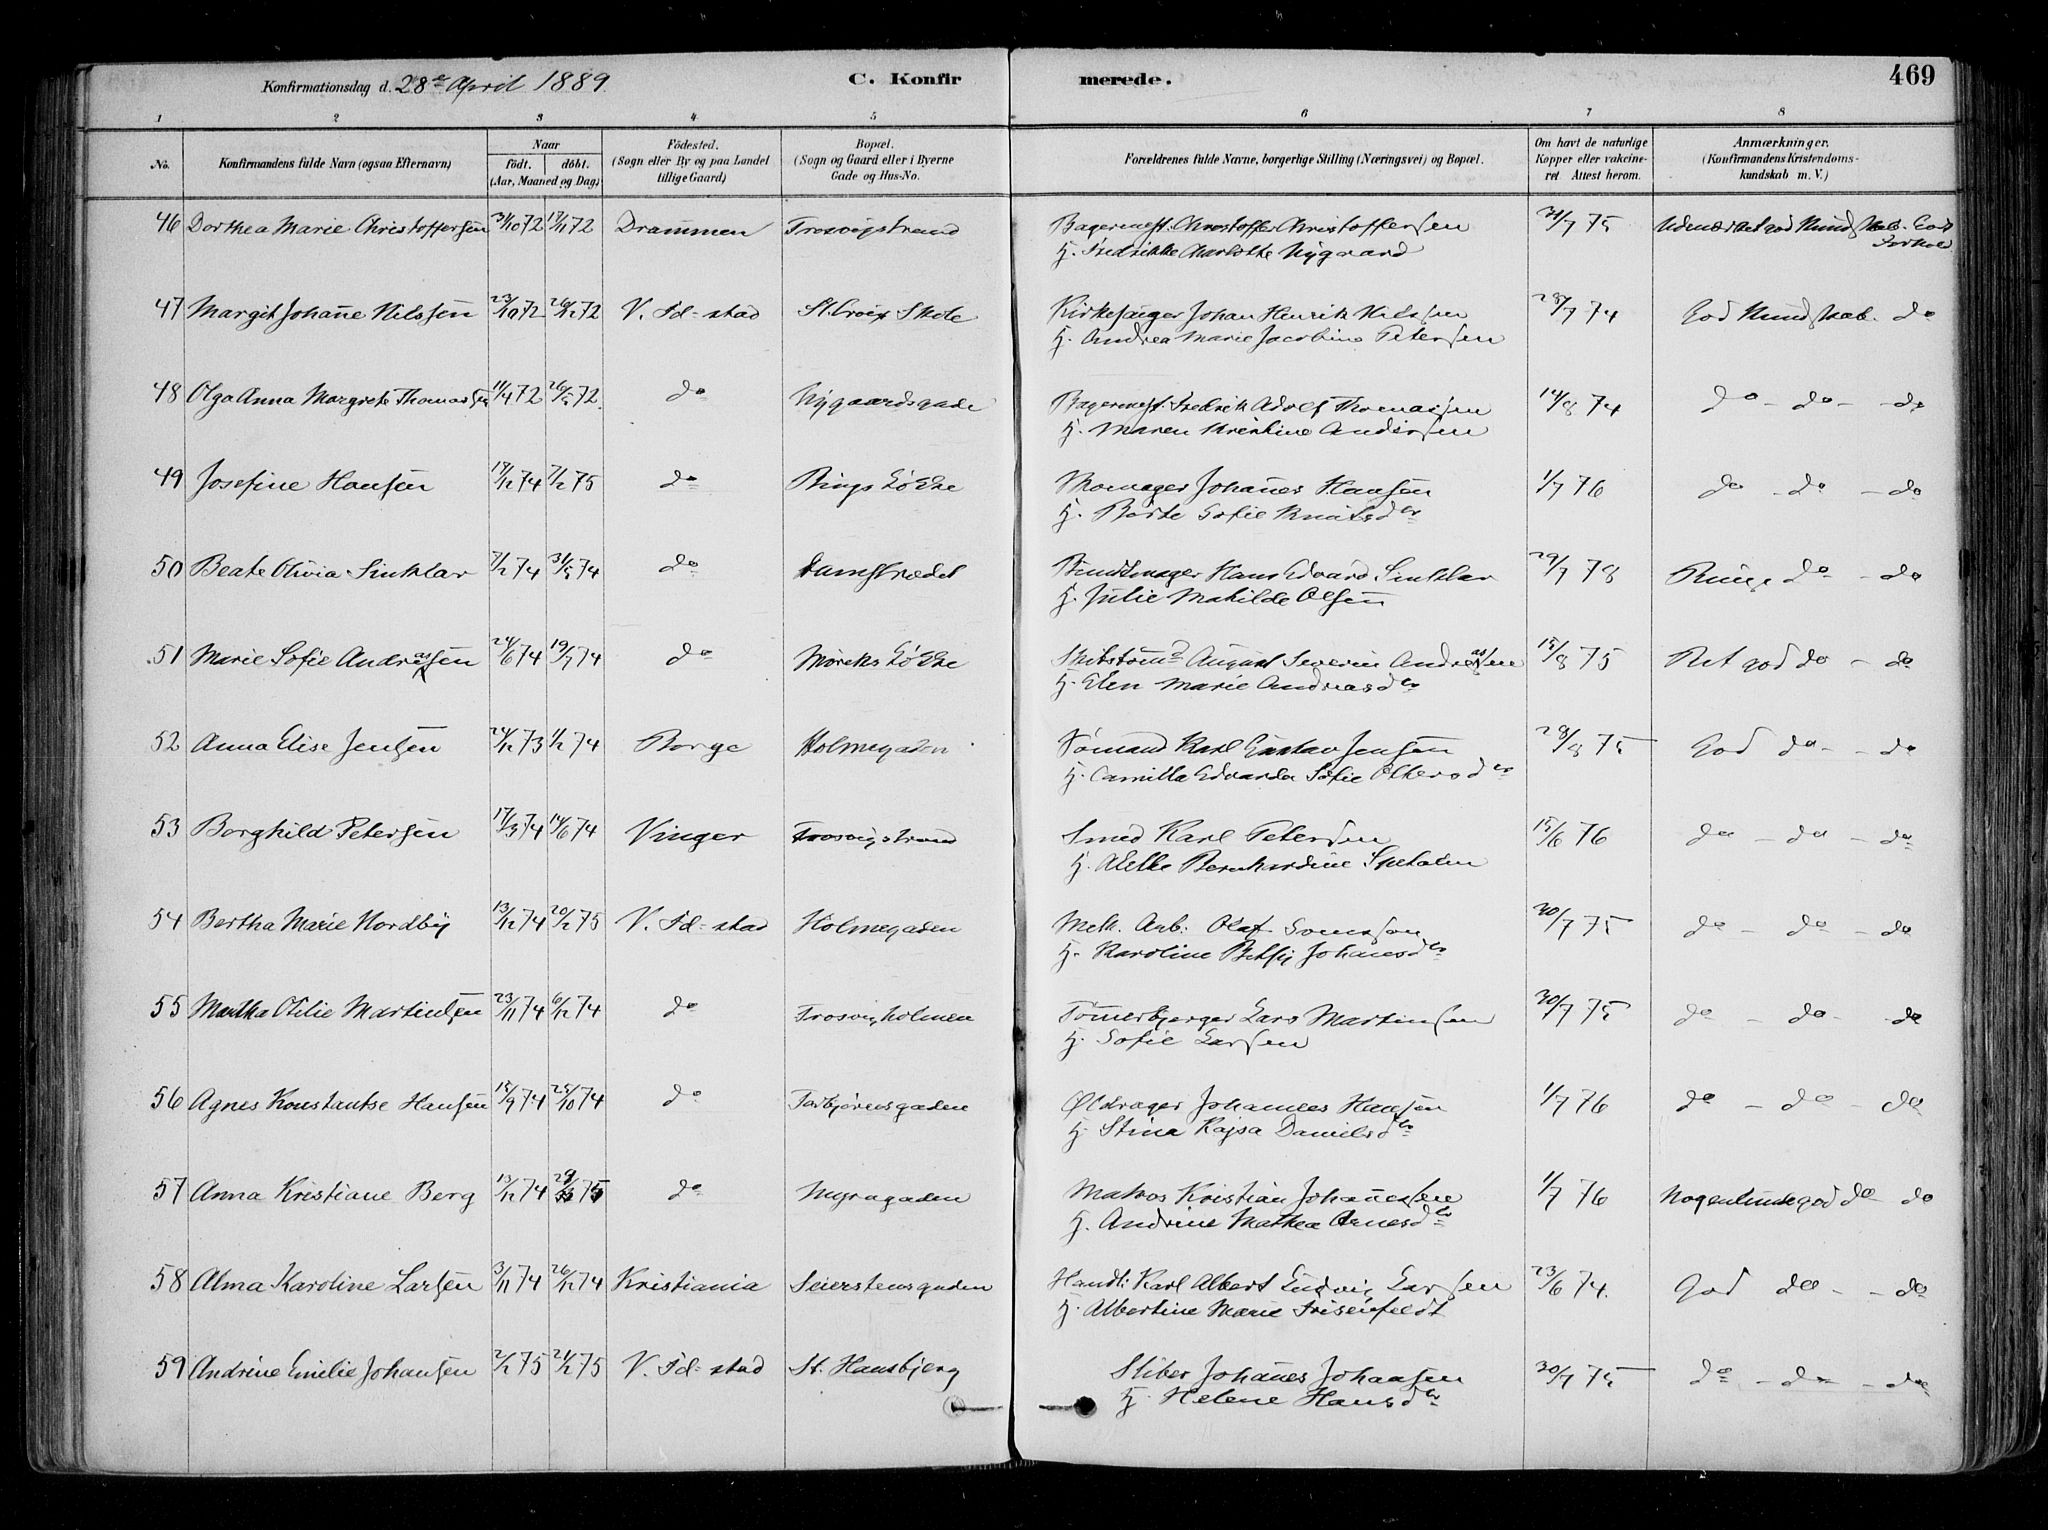 Konfirmationsdag d. 28de April 1889. C. Konfirmerede. 469
1 2 3 4 5 6 7 8
No. Konfirmandens fulde Navn (ogsaa Efternavn) Naar födt. döbt. (Aar, Maaned og Dag) Födested. (Sogn eller By og paa Landet tillige Gaard) Bopæl. (Sogn og Gaard eller i Byerne Gade og Hus-No. Forældrenes fulde Navne, borgerlige Stilling (Næringsvei) og Bopæl. Om havt de naturlige Kopper eller vakcineret. Attest herom. Anmærkninger. (Konfirmandens Kristendomskundskab m. V.)
46 Dorthea Marie Christoffersen 31/10 72 17/11 72 Drammen Trosvigstrand Bagermest. Christoffer Christoffersen 21/7 75 Udmærket god Kundskab. God Forhold
H. Fredrikke Charlotte Nygaard
47 Margit Johanne Nilssen 23/10 72 26/12 72 V. Fd-stad St. Croix Skole Kirkesanger Johan Henrik Nilssen 28/7 74 God Kundskab. do
H. Andrea Marie Jacobine Petersen
48 Olga Anna Margrete Thomassen 11/4 72 26/5 72. do Nygaardsgade Bagermest. Fredrik Adolf Thomassen 14/8 74 do - do - do
H. Maren Kristine Andersen
49 Josefine Hansen 18/12 74 7/2 75 do Rings Løkke Johanes Hansen 1/7 76 do - do - do
H. Børte Sofie Knutsdtr
50 Beate Olivia Sinklar 7/2 74 31/5 74 do Damstrædet Buntmager Hans Edvard Sinklar 29/7 78 do - do
H. Julie Mathilde Olsen
51 Marie Sofie Andreassen 24/6 74 19/7 74 do Møreks Løkke August Severin Andreassen 15/8 75 Ret god do - do
H. Elen Marie Andreasdtr
52 Anna Elise Jensen 24/12 73 1/2 74 Borge Holmegaden Sømand Karl Gustav Jensen 28/8 75 God do - - do
H. Camilla Edvarda Sofie Oltersdtr
53 Borghild Petersen 17/3 74 14/6 74 Vinger Trosvigstrand Smed Karl Petersen 15/6 76 do - do - do
H. Bernhardine
54 Bertha Marie Nordby 13/12 74 20/2 75 V. Fd-stad Holmegaden Mek. Arb. Olaf 30/7 75 do - do - do
H. Karoline Betsy Johanesdtr
55 Martha Otilie Martinsen 23/11 74 6/12 74 do Trosvigholmen Tømerbjerger Lars Martinsen 30/7 75 do - do - do
H. Sofie Larsen
56 Agnes Konstantse Hansen 15/9 74 25/10 74 do Torbjørnsgaden Øldrager Johannes Hansen 1/7 76 do - do - do
H. Stina Kajsa Danielsdtr
57 Anna Kristiane Berg 13/12 74 75 do Myragaden Matros Kristian Johanessen 1/7 76 Nogenlunde god do - do
H. Andrine Mathea Arnesdtr
58 Alma Karoline Larsen 3/11 74 26/12 74 Kristiania Seierstensgaden Handl: Karl Albert Ludvig Larsen 23/6 74. God do - - do
H. Albertine Marie Frisenfeldt
59 Andrine Emilie Johansen 2/1 75 21/2 75 V. Fd-stad St. Hansbjerg Sliber Johanes Johansen 30/7 75 do - do - do
H. Helene Hansdtr